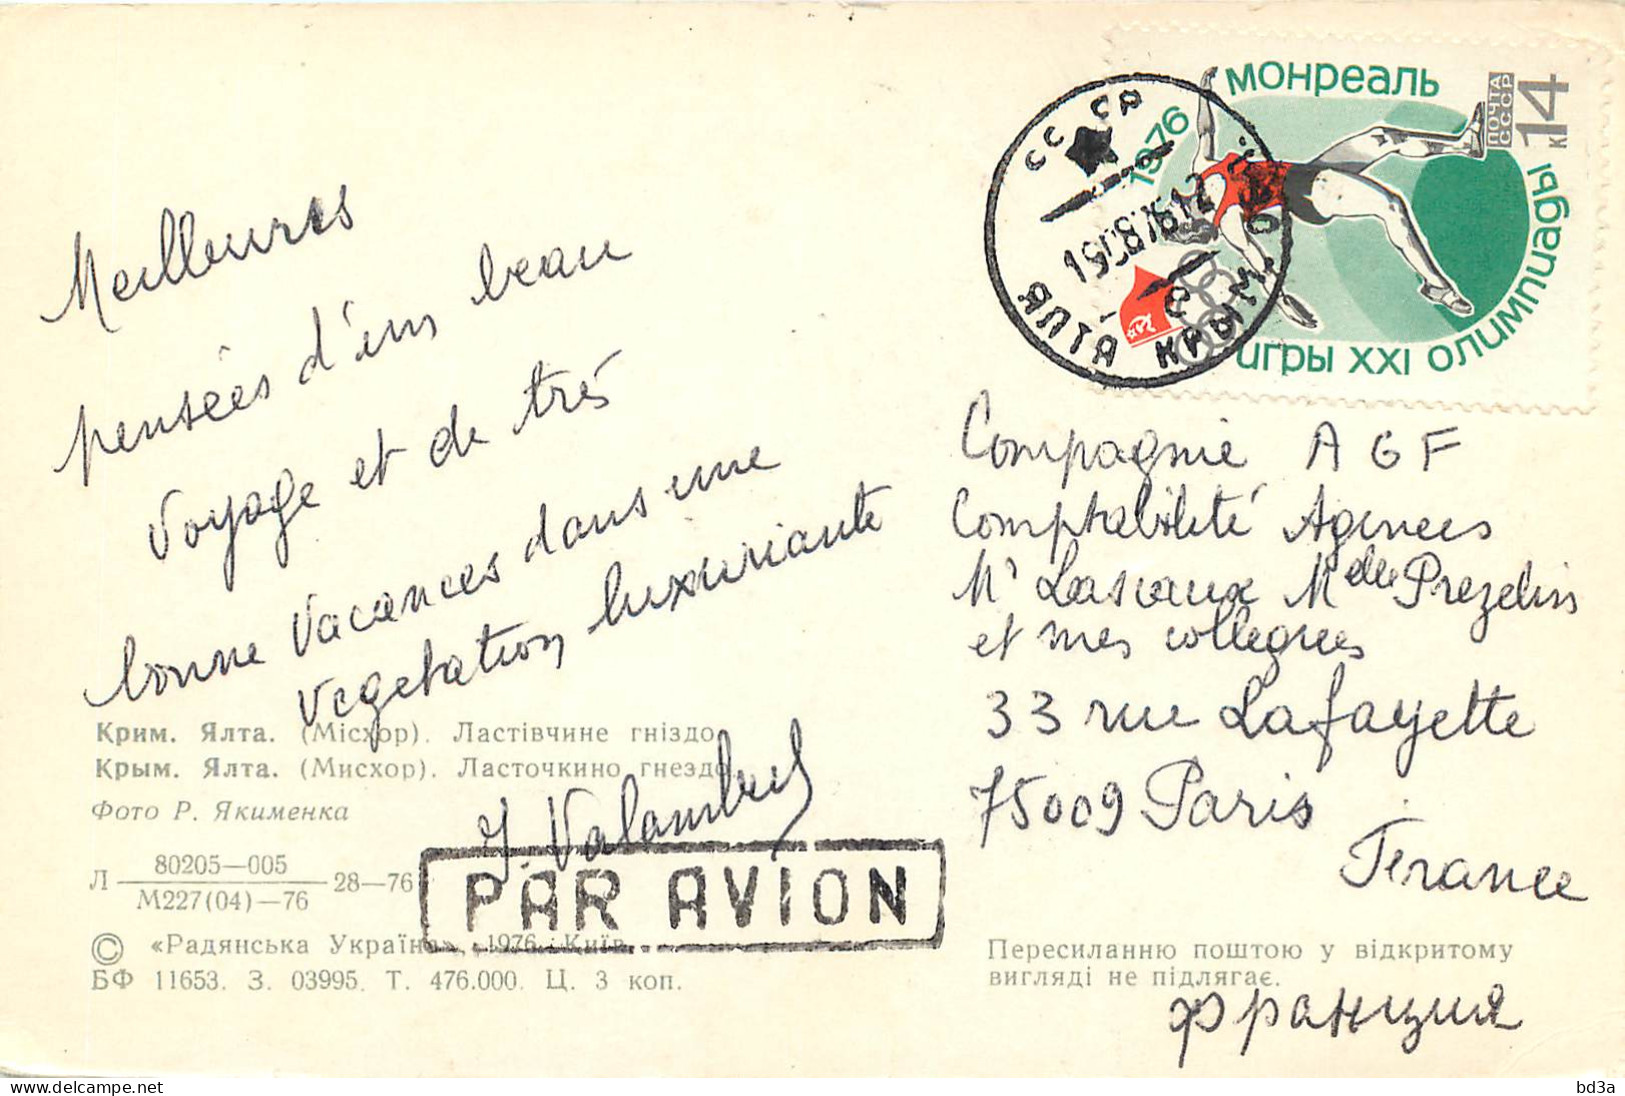 Meilleures
pensées d'un beau
Voyage et de très
bonne Vacances dans une
Vegetation luxuriante
Крим. Ялта. (Місхор). Ластівчине гніздо.
Крым. Ялта. (Мисхор). Ласточкино гнездо.
Фото Р. Якименка
Л 80205—005
М227(04)—76 28—76
PAR AVION
© «Радянська Україна», 1976. Київ.
БФ 11653. З. 03995. Т. 476.000. Ц. 3 коп.
МОНРЕАЛЬ
1976
ПОЧТА
СССР
14
К
ИГРЫ XXI ОЛИМПИАДЫ
СССР
ЯЛТА КРЫМ
Compagnie AGF
Comptabilité Agences
Mr Lascaux Mdelle Prezelin
et mes collegues
33 rue Lafayette
75009 Paris
France
Пересиланню поштою у відкритому
вигляді не підлягає.
Франция
delcampe.net
bd3a